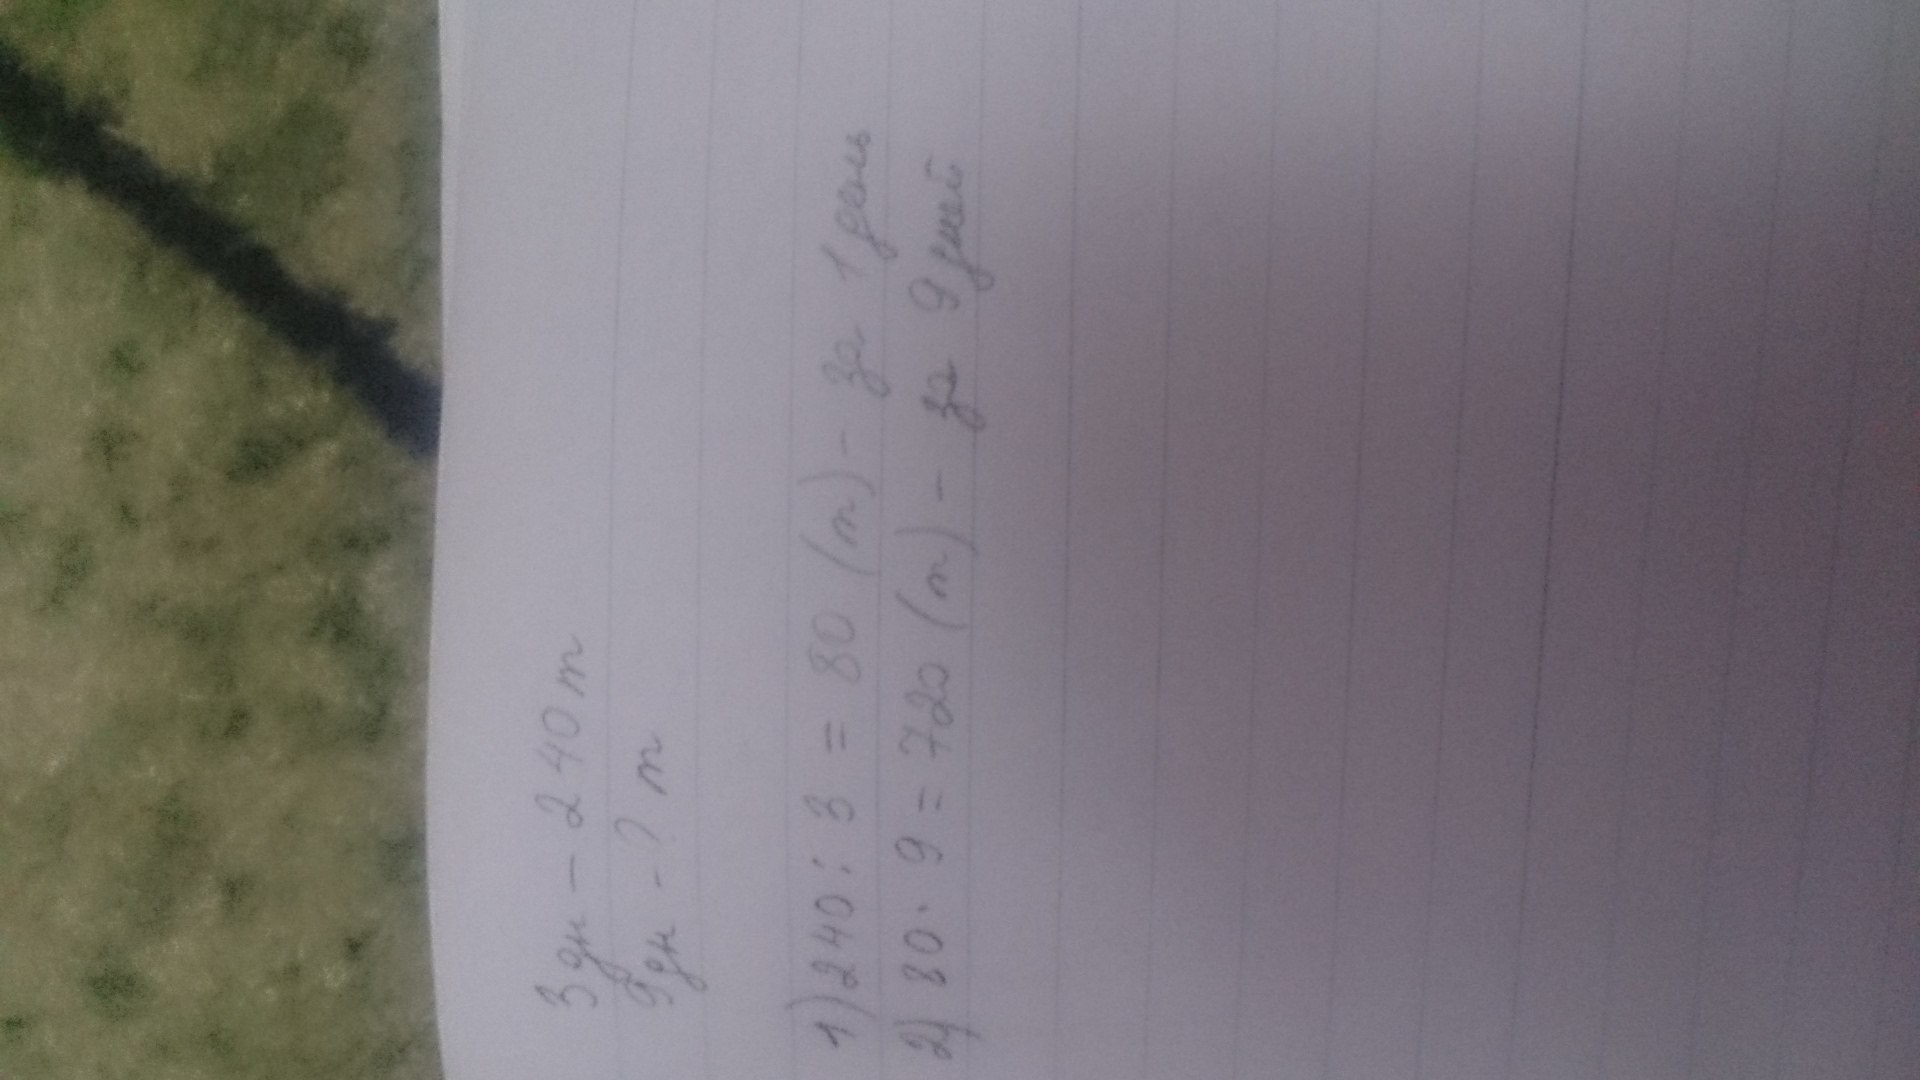 3 дн - 240 т
9 дн - ? т
1) 240 : 3 = 80 (т) - за 1 день
2) 80 · 9 = 720 (т) - за 9 дней